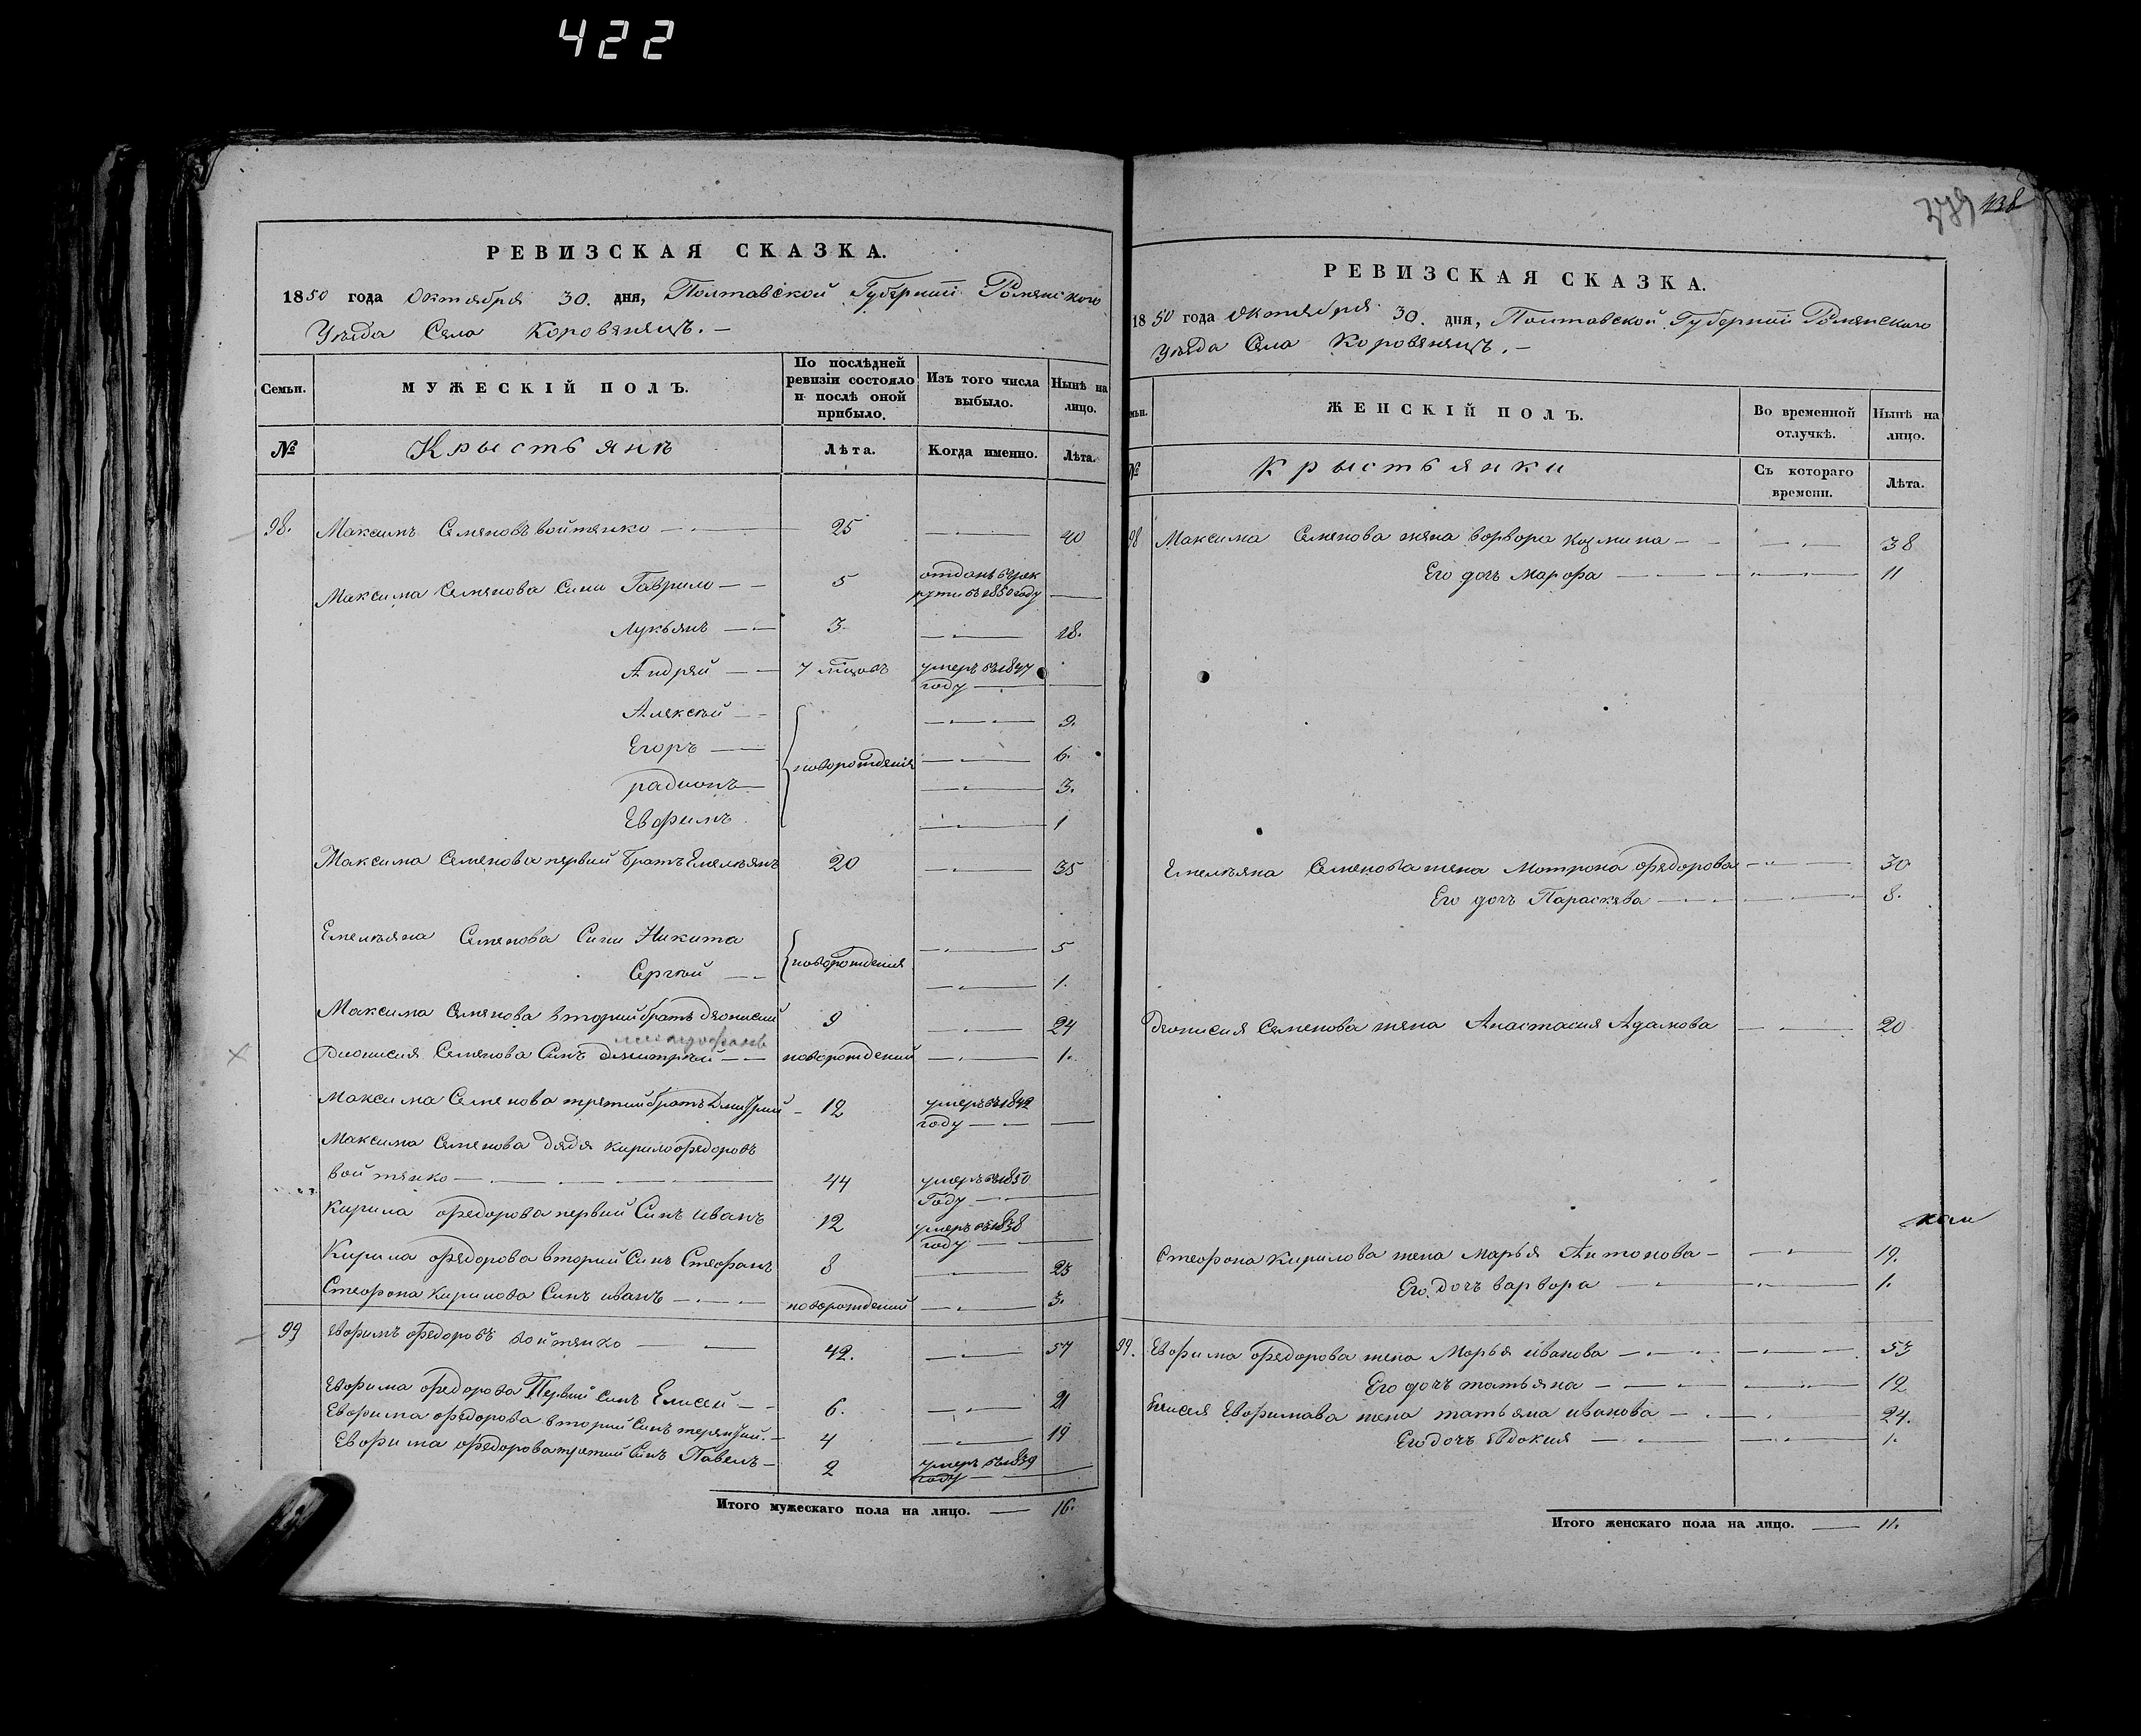 422
РЕВИЗСКАЯ СКАЗКА.
1850 года Октября 30. дня, Полтавской Губернии Роменского
Уезда Села Коровянецъ. –
Семьи. МУЖЕСКІЙ ПОЛЪ. По послѣдней ревизіи состояло и послѣ оной прибыло. Изъ того числа выбыло. Нынѣ на лицо.
№ Крыстьянъ Лѣта. Когда именно. Лѣта.
98. Максимъ Семеновъ войтенко 25 40
Максима Семенова сини Гаврило 5 отданъ въ рекрути въ 1850 году
Лукьянъ 3 18.
Андрей 7 мцовъ умеръ въ 1847 году
Алексей 9.
Егоръ новорождения 6.
радионъ 3.
Евфимъ 1
Максима Семенова первий братъ Емельянъ 20 35
Емельяна Семенова Сини Никита 5
Сергей новорождения 1.
Максима Семенова вторий братъ Дионисий 9 24
Дионисия Семенова Синъ Димитрей новорожденний 1.
Максима Семенова третий братъ Дмитрий 12 умеръ въ 1842 году
Максима Семенова дядя кирило федоровъ
войтенко 44 умеръ въ 1850 Году
Кирила федорова первий Синъ иванъ 12 умеръ въ 1838 году
Кирила федорова вторий Синъ Стефанъ 8 23
Стефана Кирилова Синъ иванъ новорожденний 3.
99 Евфимъ федоровъ войтенко 42. 57
Евфима федорова Первий синъ Елисей 6. 21
Евфима федорова вторий Синъ терентий 4 19
Евфима федорова третий Синъ Павелъ 2 умеръ въ 1839 году
Итого мужескаго пола на лицо. 16.
438
РЕВИЗСКАЯ СКАЗКА.
1850 года Октября 30. дня, Полтавской Губернии Роменского
Уезда Села Коровянецъ. –
ЖЕНСКІЙ ПОЛЪ. Во временной отлучкѣ. Нынѣ на лицо.
№ Крыстьянки Съ котораго времени. Лѣта.
98 Максима Семенова жена варвара козмина 38
Его дочь Марфа 11
Емельяна Семенова жена Мотрона федорова 30
Его дочь Параскева 8.
Дионисия Семенова жена Анастасия Адамова 20
Стефана Кирилова жена марья Антонова 19.
Его дочь варвара 1.
99. Евфима федорова жена Марья иванова 53
Его дочь татьяна 12
Елисея Евфимава жена татьяна иванова 24.
Его дочь Евдокия 1.
Итого женскаго пола на лицо. 11.